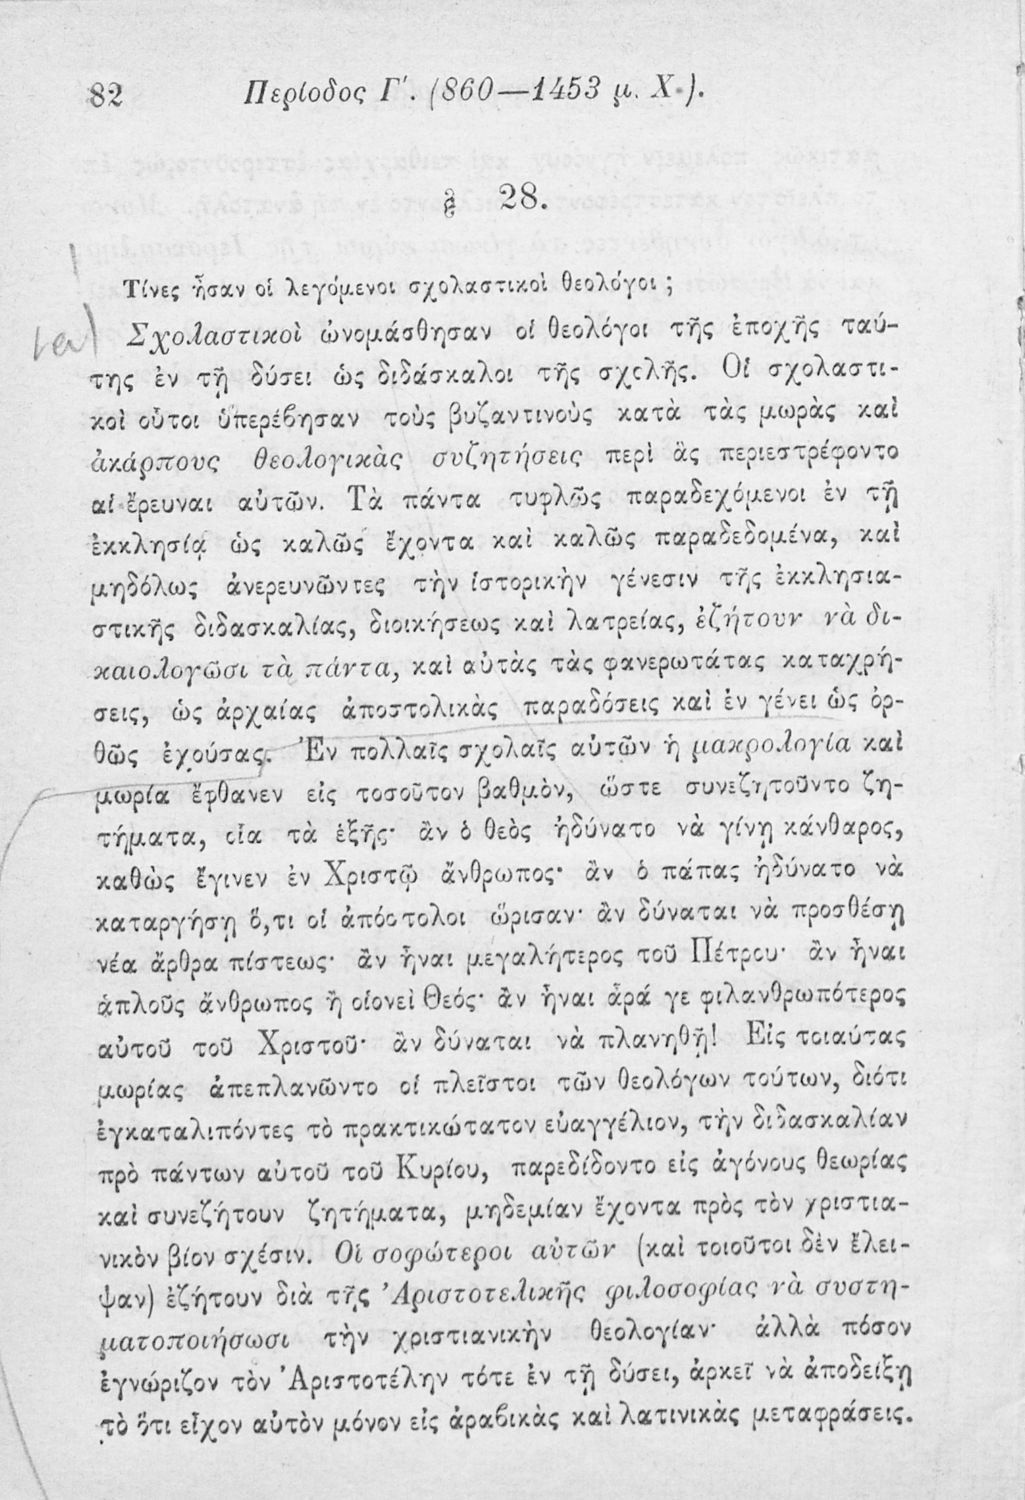 82 Περίοδος Γ'. (860—1453 μ. Χ.).
§ 28.
Τίνες ἦσαν οἱ λεγόμενοι σχολαστικοὶ θεολόγοι ;
Σχολαστικοὶ ὠνομάσθησαν οἱ θεολόγοι τῆς ἐποχῆς ταύ-
της ἐν τῇ δύσει ὡς διδάσκαλοι τῆς σχολῆς. Οἱ σχολαστι-
κοὶ οὗτοι ὑπερέβησαν τοὺς βυζαντινοὺς κατὰ τὰς μωρὰς καὶ
ἀκάρπους θεολογικὰς συζητήσεις περὶ ἃς περιεστρέφοντο
αἱ ἔρευναι αὐτῶν. Τὰ πάντα τυφλῶς παραδεχόμενοι ἐν τῇ
ἐκκλησίᾳ ὡς καλῶς ἔχοντα καὶ καλῶς παραδεδομένα, καὶ
μηδόλως ἀνερευνῶντες τὴν ἱστορικὴν γένεσιν τῆς ἐκκλησια-
στικῆς διδασκαλίας, διοικήσεως καὶ λατρείας, ἐζήτουν νὰ δι-
καιολογῶσι τὰ πάντα, καὶ αὐτὰς τὰς φανερωτάτας καταχρή-
σεις, ὡς ἀρχαίας ἀποστολικὰς παραδόσεις καὶ ἐν γένει ὡς ὀρ-
θῶς ἐχούσας. Ἐν πολλαῖς σχολαῖς αὐτῶν ἡ μακρολογία καὶ
μωρία ἔφθανεν εἰς τοσοῦτον βαθμὸν, ὥστε συνεζητοῦντο ζη-
τήματα, οἷα τὰ ἑξῆς· ἂν ὁ θεὸς ἠδύνατο νὰ γίνῃ κάνθαρος,
καθὼς ἔγινεν ἐν Χριστῷ ἄνθρωπος· ἂν ὁ πάπας ἠδύνατο νὰ
καταργήσῃ ὅ,τι οἱ ἀπόστολοι ὥρισαν· ἂν δύναται νὰ προσθέσῃ
νέα ἄρθρα πίστεως· ἂν ἦναι μεγαλήτερος τοῦ Πέτρου· ἂν ἦναι
ἁπλοῦς ἄνθρωπος ἢ οἱονεὶ Θεός· ἂν ἦναι ἆρά γε φιλανθρωπότερος
αὐτοῦ τοῦ Χριστοῦ· ἂν δύναται νὰ πλανηθῇ! Εἰς τοιαύτας
μωρίας ἀπεπλανῶντο οἱ πλεῖστοι τῶν θεολόγων τούτων, διότι
ἐγκαταλιπόντες τὸ πρακτικώτατον εὐαγγέλιον, τὴν διδασκαλίαν
πρὸ πάντων αὐτοῦ τοῦ Κυρίου, παρεδίδοντο εἰς ἀγόνους θεωρίας
καὶ συνεζήτουν ζητήματα, μηδεμίαν ἔχοντα πρὸς τὸν χριστια-
νικὸν βίον σχέσιν. Οἱ σοφώτεροι αὐτῶν (καὶ τοιοῦτοι δὲν ἔλει-
ψαν) ἐζήτουν διὰ τῆς Ἀριστοτελικῆς φιλοσοφίας νὰ συστη-
ματοποιήσωσι τὴν χριστιανικὴν θεολογίαν· ἀλλὰ πόσον
ἐγνώριζον τὸν Ἀριστοτέλην τότε ἐν τῇ δύσει, ἀρκεῖ νὰ ἀποδείξῃ
τὸ ὅτι εἶχον αὐτὸν μόνον εἰς ἀραβικὰς καὶ λατινικὰς μεταφράσεις.